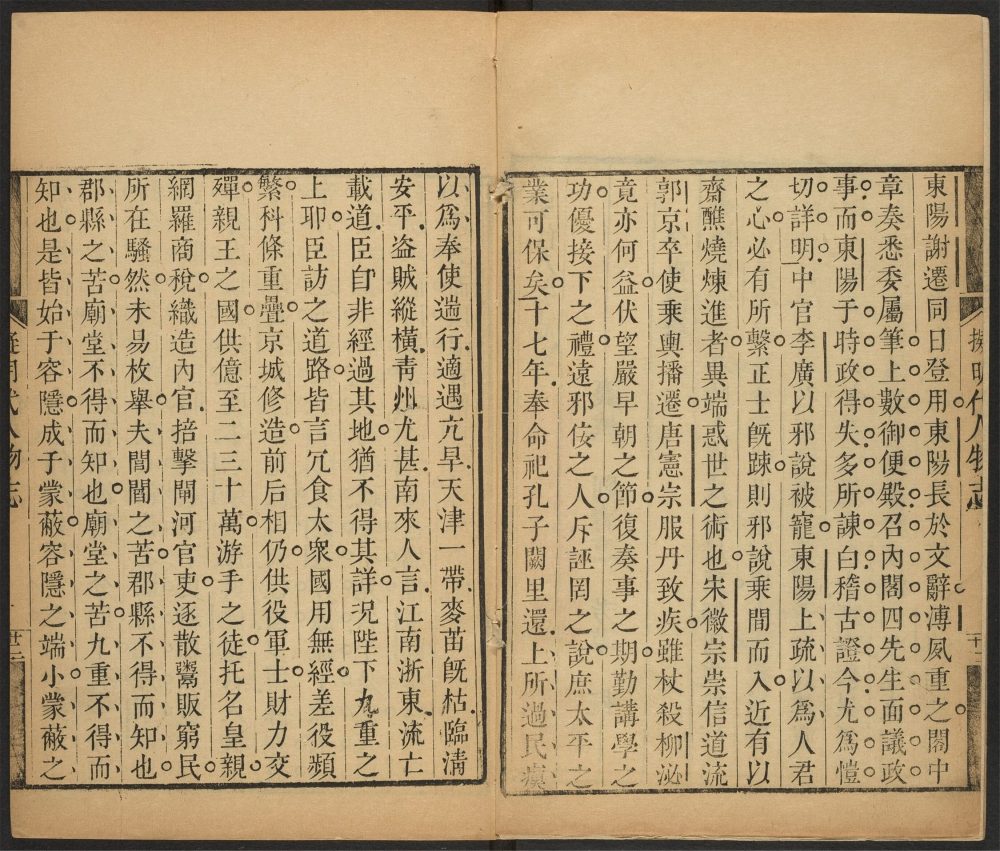 東陽謝遷同日登用東陽長於文辭溥夙重之閣中
章奏悉委屬筆上數御便殿召內閣四先生面議政
事而東陽于時政得失多所諫白稽古證今尤為愷
切詳明中官李廣以邪說被寵東陽上疏以為人君
之心必有所繫正士既踈則邪說乘間而入近有以
齋醮燒煉進者異端惑世之術也宋徽宗崇信道流
郭京卒使乘輿播遷唐憲宗服丹致疾雖杖殺柳泌
竟亦何益伏望嚴早朝之節復奏事之期勤講學之
功優接下之禮遠邪佞之人斥誣罔之說庶太平之
業可保矣十七年奉命祀孔子闕里還上所過民瘼
擬明代人物志
以為奉使遄行適遇亢旱天津一帶麥苗既枯臨清
安平盜賊縱橫青州尤甚南來人言江南浙東流亡
載道臣自非經過其地猶不得其詳況陛下九重之
上耶臣訪之道路皆言冗食太衆國用無經差役頻
繁科條重疊京城修造前后相仍供役軍士財力交
殫親王之國供億至二三十萬游手之徒托名皇親
網羅商稅織造內官掊擊閘河官吏逐散鬻販窮民
所在騷然未易枚舉夫閭閻之苦郡縣不得而知也
郡縣之苦廟堂不得而知也廟堂之苦九重不得而
知也是皆始于容隱成于蒙蔽容隱之端小蒙蔽之
代人物志